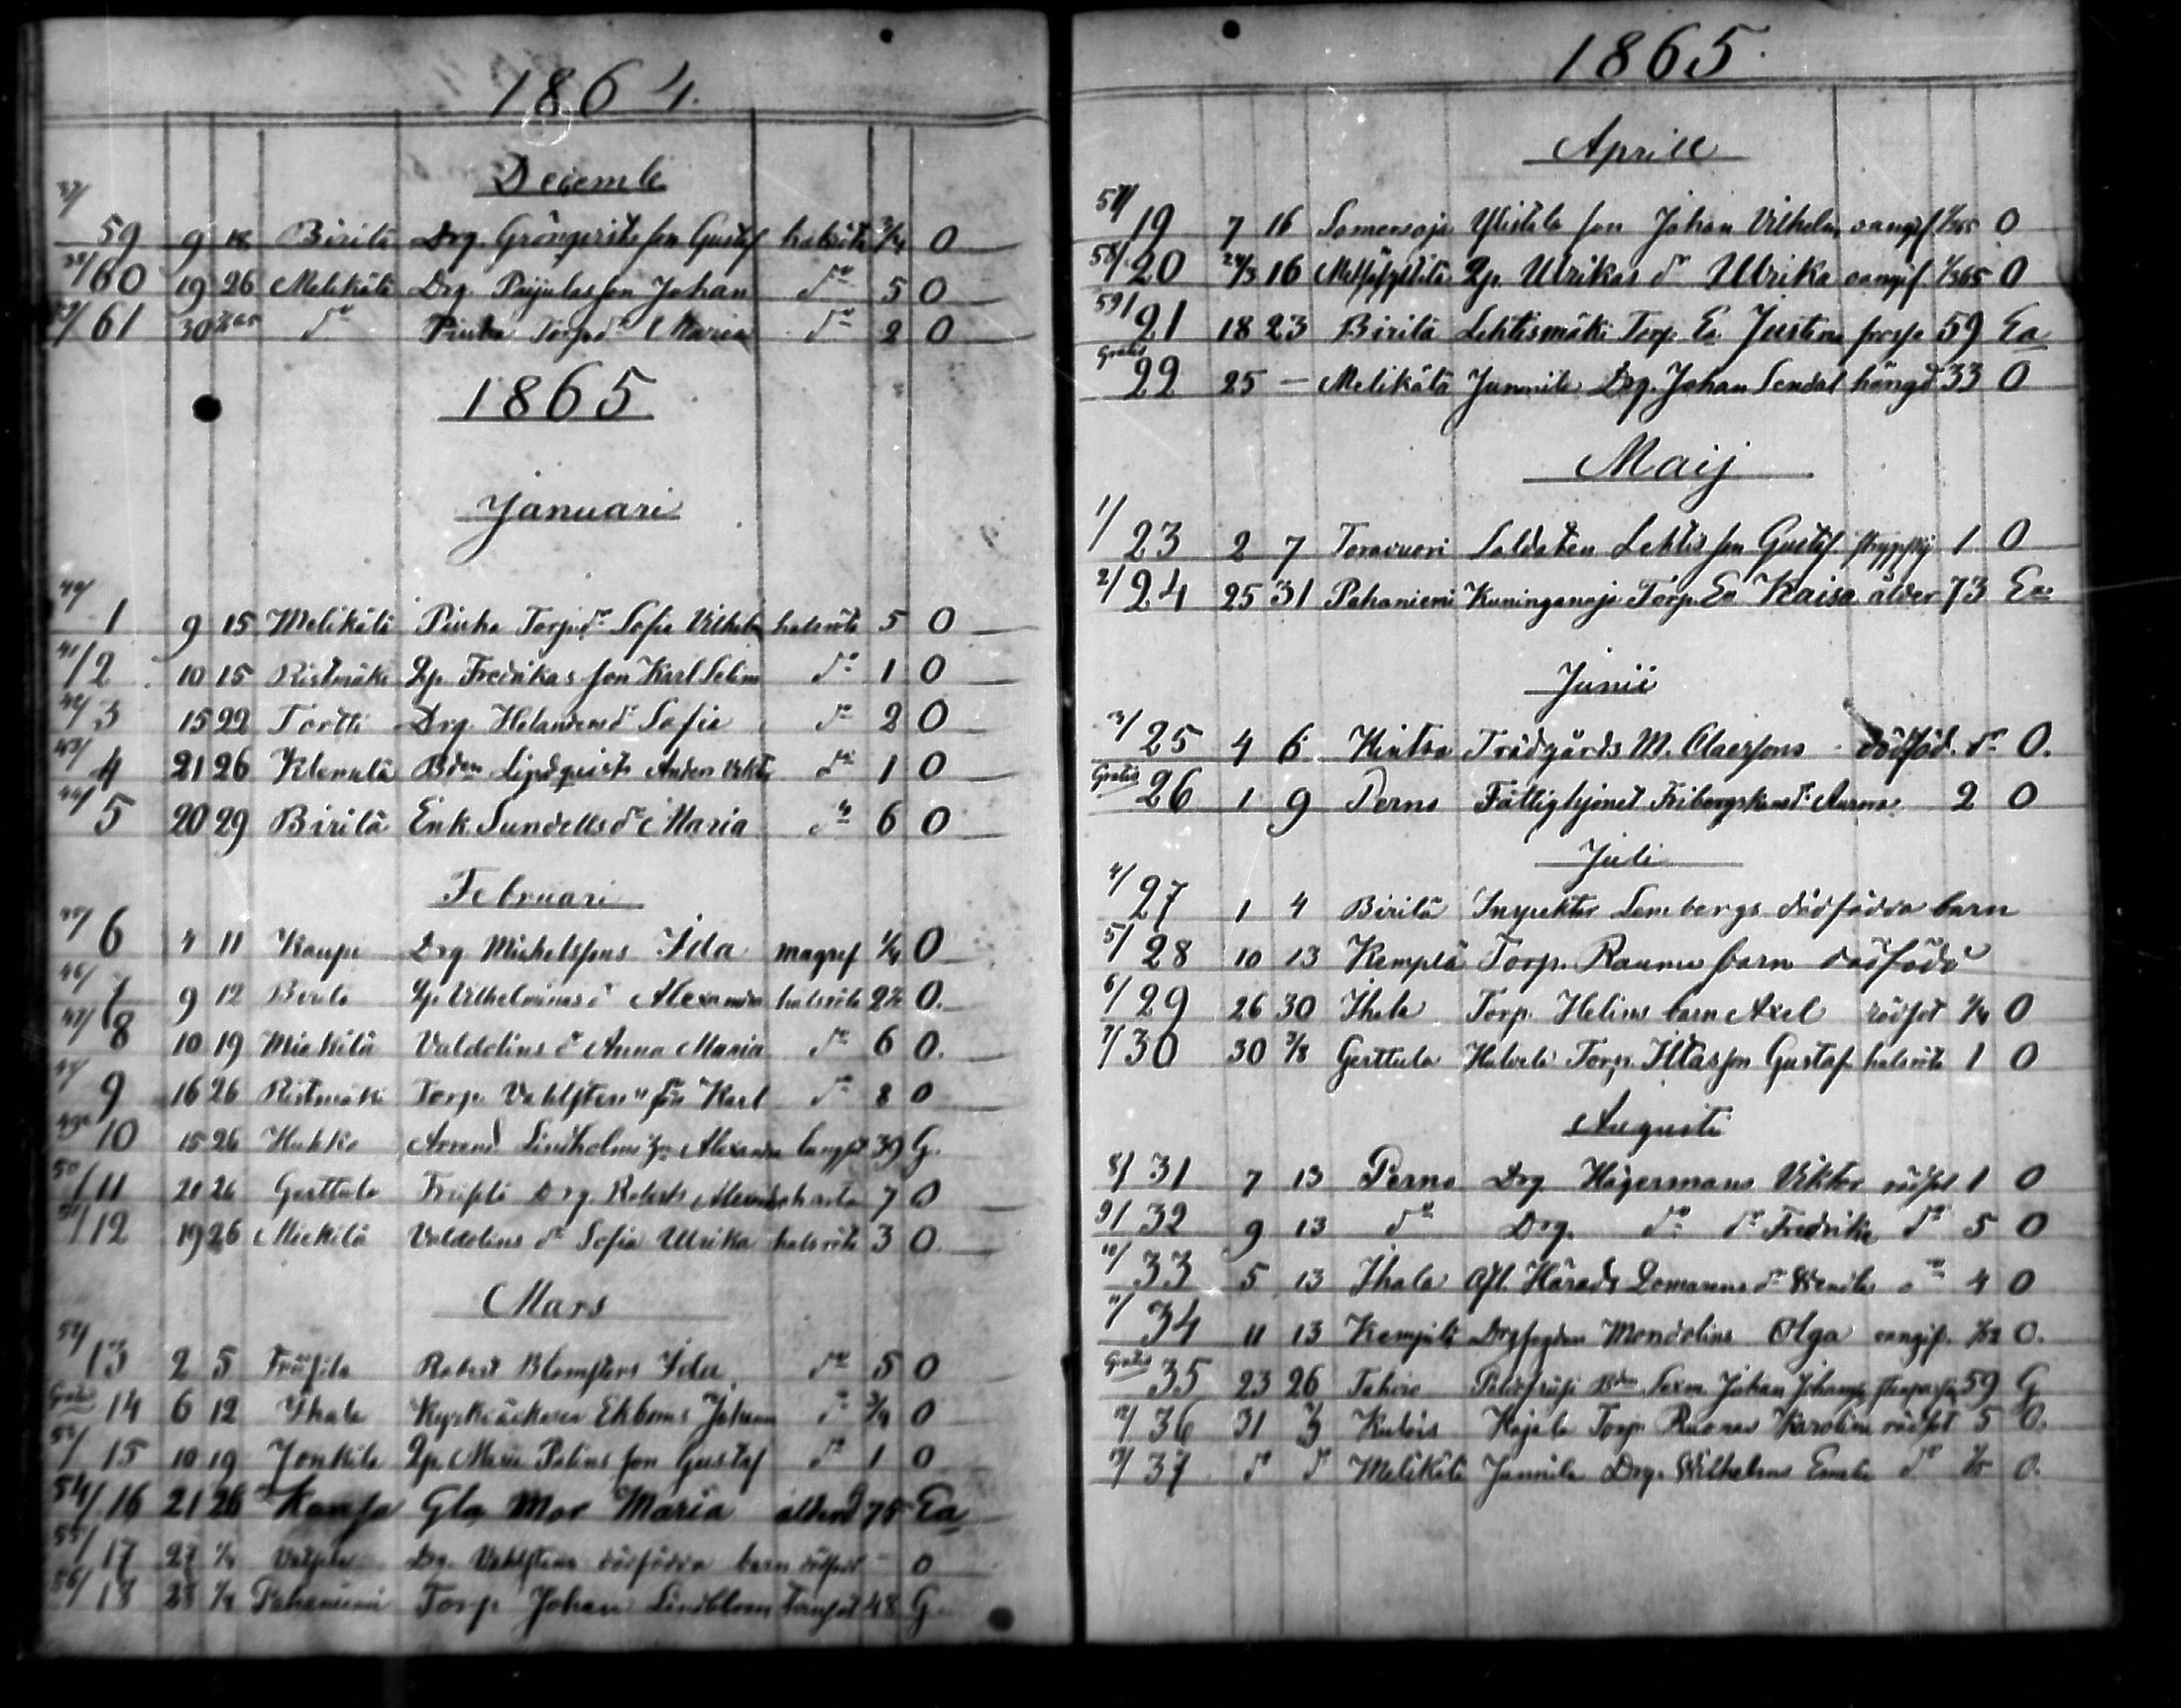 1864.
Decemb
37/ 59 9 18 Birilä Drg. Grönqvists son Gustaf halsröta 3/4 0
38/ 60 19 26 Melikälä Drg. son Johan do 5 0
39/ 61 30 do Pinha Torp. do Maria do 2 0
1865
Januari
40/ 1 9 15 Melikälä Pinha Torp. do Sofia Vilhelm halsröta 5 0
41/ 2 10 15 Ristmäki Qp. Fredrikas son Karl Selim do 1 0
42/ 3 15 22 Tortti Drg. Helanders do Sofia do 2 0
43/ 4 21 26 Klemelä Bden Lindqvists Anders Vikt do 1 0
44/ 5 20 29 Birilä Enk. Sundells do Maria do 6 0
Februari
45/ 6 4 11 Kaupi Drg Mickelssons Ida magref 1/4 0
46/ 7 9 12 Birila Qp. Vilhelminas d Alexandra halsröta 2 1/2 0.
47/ 8 10 19 Mickilä Valdolins d Anna Maria do 6 0.
48/ 9 16 26 Ristmäki Torp. Vahlsten" son Karl do 8 0
49/ 10 15 26 Hukko Arrend Lindholms Alexandra lungsot 39 G.
50/ 11 21 26 Gerttula Friisilä Drg. Roberts 7 0
51/ 12 19 26 Mickilä Valdolins do Sofia Ulrika halsröta 3 0.
Mars
52/ 13 2 5 Friisila Robert Blomsters Ida do 5 0
Gratis 14 6 12 Ihala Kyrkväktaren Ekboms Johan do 3/4 0
53/ 15 10 19 Jonkila Qp. Maria Palins son Gustaf do 1 0
54/ 16 21 26 Gla Mor Maria ålderd 75 Ea
55/ 17 27 1/4 Drg. Vahlstens dödfödda barn dödfödt – 0
56/ 18 28 1/4 Pahaniemi Torp. Johan Lindblom 48 G.
1865.
Aprill
57/ 19 7 16 Somersoja Ylistalo son Johan Vilhelm oangif 0
58/ 20 24/3 16 Qp. Ulrikas do Ulrika oangif. 0
59/ 21 18 23 Birilä Lehtismäki Torp. Ea Justina frossa 59 Ea
Gratis 22 25 — Melikälä Junnila Drg. Johan Sendal hängd 33 0
Maij
1/ 23 2 7 Toravuori Soldaten Lehtis son Gustaf. 1 0
2/ 24 25 31 Pahaniemi Kuninganoja Torp. Ea Kaisa ålder 73 Ea
Junii
3/ 25 4 6 Kintsa Trädgårds M. Claessons dödföd. do 0.
Gratis 26 1 9 Perno Fattighjonet Fribergskans do Aurora 2 0
Juli
4/ 27 1 4 Birilä Inspektor Lembergs dödfödda barn
5/ 28 10 13 Kemplä Torp. Raumo barn dödfödd
6/ 29 26 30 Ihala Torp. Helins barn Axel rödsot 1/4 0
7/ 30 30 3/8 Gerttula Torp. Iltas son Gustaf halsröta 1 0
Augusti
8/ 31 7 13 Perno Drg. Hägermans Viktor rödsot 1 0
9/ 32 9 13 do Drg. do do Fredrika do 5 0
10/ 33 5 13 Ihala Afl. Härads Domarens do Wendla do 4 0
11/ 34 11 13 Kempilä Drgfogden Mondolins Olga oangif. 0.
Gratis 35 23 26 Tahvio Bden Sexm. Johan 59 G
12/ 36 31 3 Kulois Kajala Torp. Karolina rödsot 5 0.
13/ 37 do do Melikälä Junnila Drg. Wilhelms Emelie do 0.